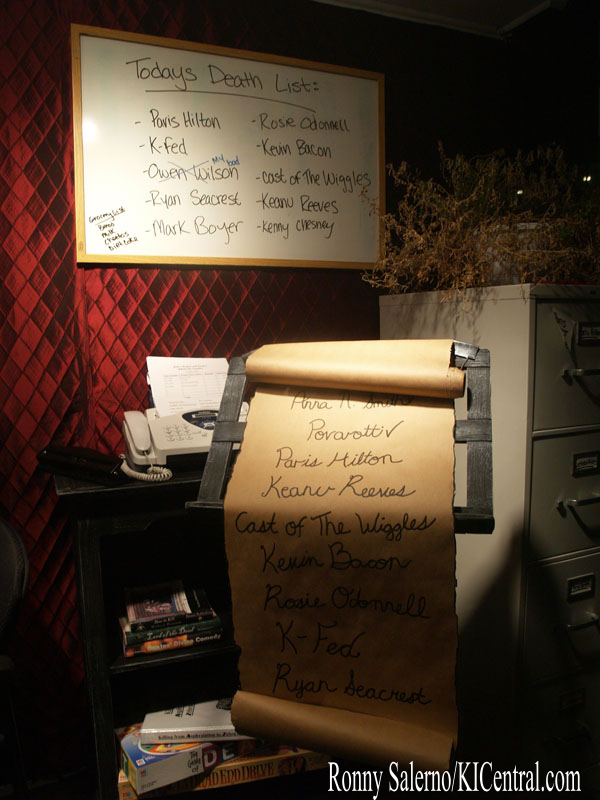 Todays Death List:
- Paris Hilton
- K-fed
- Owen Wilson My bad
- Ryan Seacrest
- Mark Boyer
- Rosie Odonnell
- Kevin Bacon
- Cast of The Wiggles
- Keanu Reeves
- Kenny Chesney
Grocery List
Milk
Anna N. Smith
Pavarotti
Paris Hilton
Keanu Reeves
Cast of The Wiggles
Kevin Bacon
Rosie Odonnell
K-Fed
Ryan Seacrest
Divine Comedy
Ronny Salerno/KICentral.com